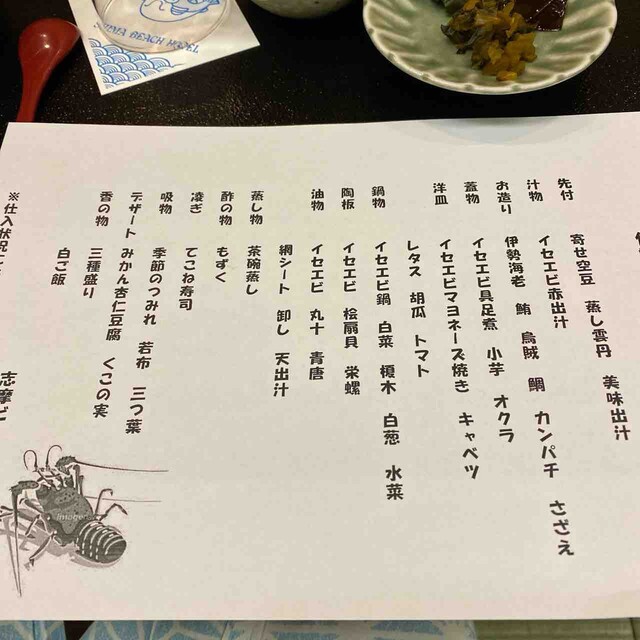 SHIMA BEACH HOTEL
先付 寄せ空豆 蒸し雲丹 美味出汁
汁物 イセエビ赤出汁
お造り 伊勢海老 鮪 烏賊 鯛 カンパチ さざえ
蓋物 イセエビ具足煮 小芋 オクラ
洋皿 イセエビマヨネーズ焼き キャベツ
レタス 胡瓜 トマト
鍋物 イセエビ鍋 白菜 榎木 白葱 水菜
陶板 イセエビ 桧扇貝 栄螺
油物 イセエビ 丸十 青唐
網シート 卸し 天出汁
蒸し物 茶碗蒸し
酢の物 もずく
凌ぎ てこね寿司
吸物 季節のつみれ 若布 三つ葉
デザート みかん杏仁豆腐 くこの実
香の物 三種盛り
白ご飯
※仕入状況に
志摩ビ